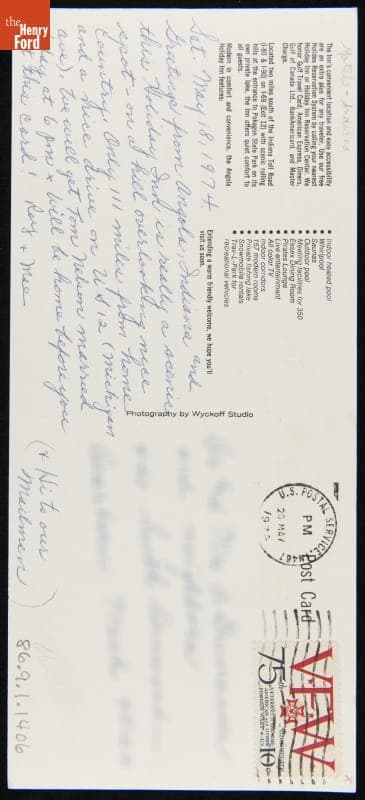 The Henry Ford
Motels - Indiana
The Inn's convenient location and easy accessibility
are an extra asset for any traveler. Use our free
Holidex Reservation System by calling your nearest
Holiday Inn or Holiday Inn Reservation Center. We
honor Gulf Travel Card, American Express, Diners,
Gulf of Canada Ltd., BankAmericard, and Master
Charge.
Located two miles south of the Indiana Toll Road
(I-80 & I-90) on I-69 (Exit 12) with scenic rolling
hills at the entrance to Pokagon State Park on its
own private lake, the Inn offers quiet comfort to
all guests.
Modern in comfort and convenience, the Angola
Holiday Inn features:
• Indoor heated pool
• Whirlpool
• Saunas
• Outdoor pool
• Meeting facilities for 350
• Essex Dining Room
• Pirates Lounge
• Live entertainment
• All color TV
• Indoor corridors
• 157 modern rooms
• Private fishing lake
• Snowmobile rentals
• Trav-L-Park for
recreational vehicles
Extending a warm friendly welcome, we hope you'll
visit us soon.
Sat May 18, 1974
Greetings from Angola, Indiana and
this Inn. Did us reach a scenic
spot in Hotel overlooking nice
Country. Only 111 miles from home
and a nice drive on US 12 (Michigan
ave) to get Tom Nelson married
at 6 pm. Will be home before you
get this card Ray & Mae
(+ Hi to our
Mailmen)
Photography by Wyckoff Studio
Post Card
U.S. POSTAL SERVICE,
PM
20 MAY
VFW
75th Anniversary
VETERANS OF SPANISH
AMERICAN AND OTHER
FOREIGN WARS
U.S.
10c
86.9.1.1406